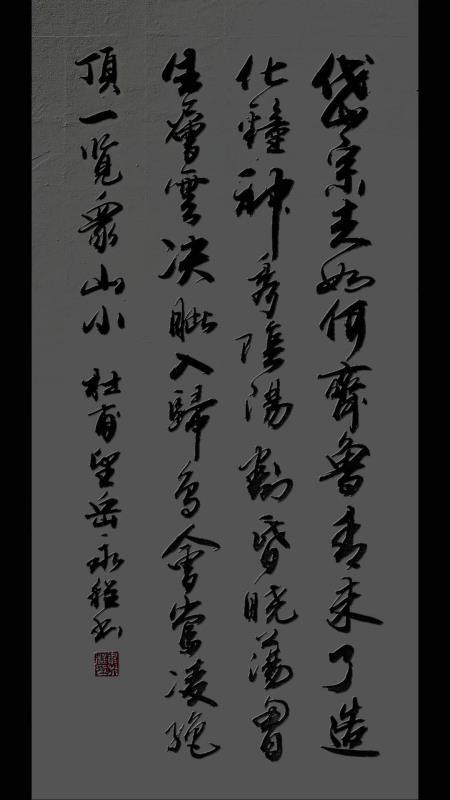 岱宗夫如何齊魯青未了造
化鍾神秀陰陽割昏曉蕩胷
生層雲决眦入歸鳥會當凌絕
頂一览衆山小 杜甫望岳 永